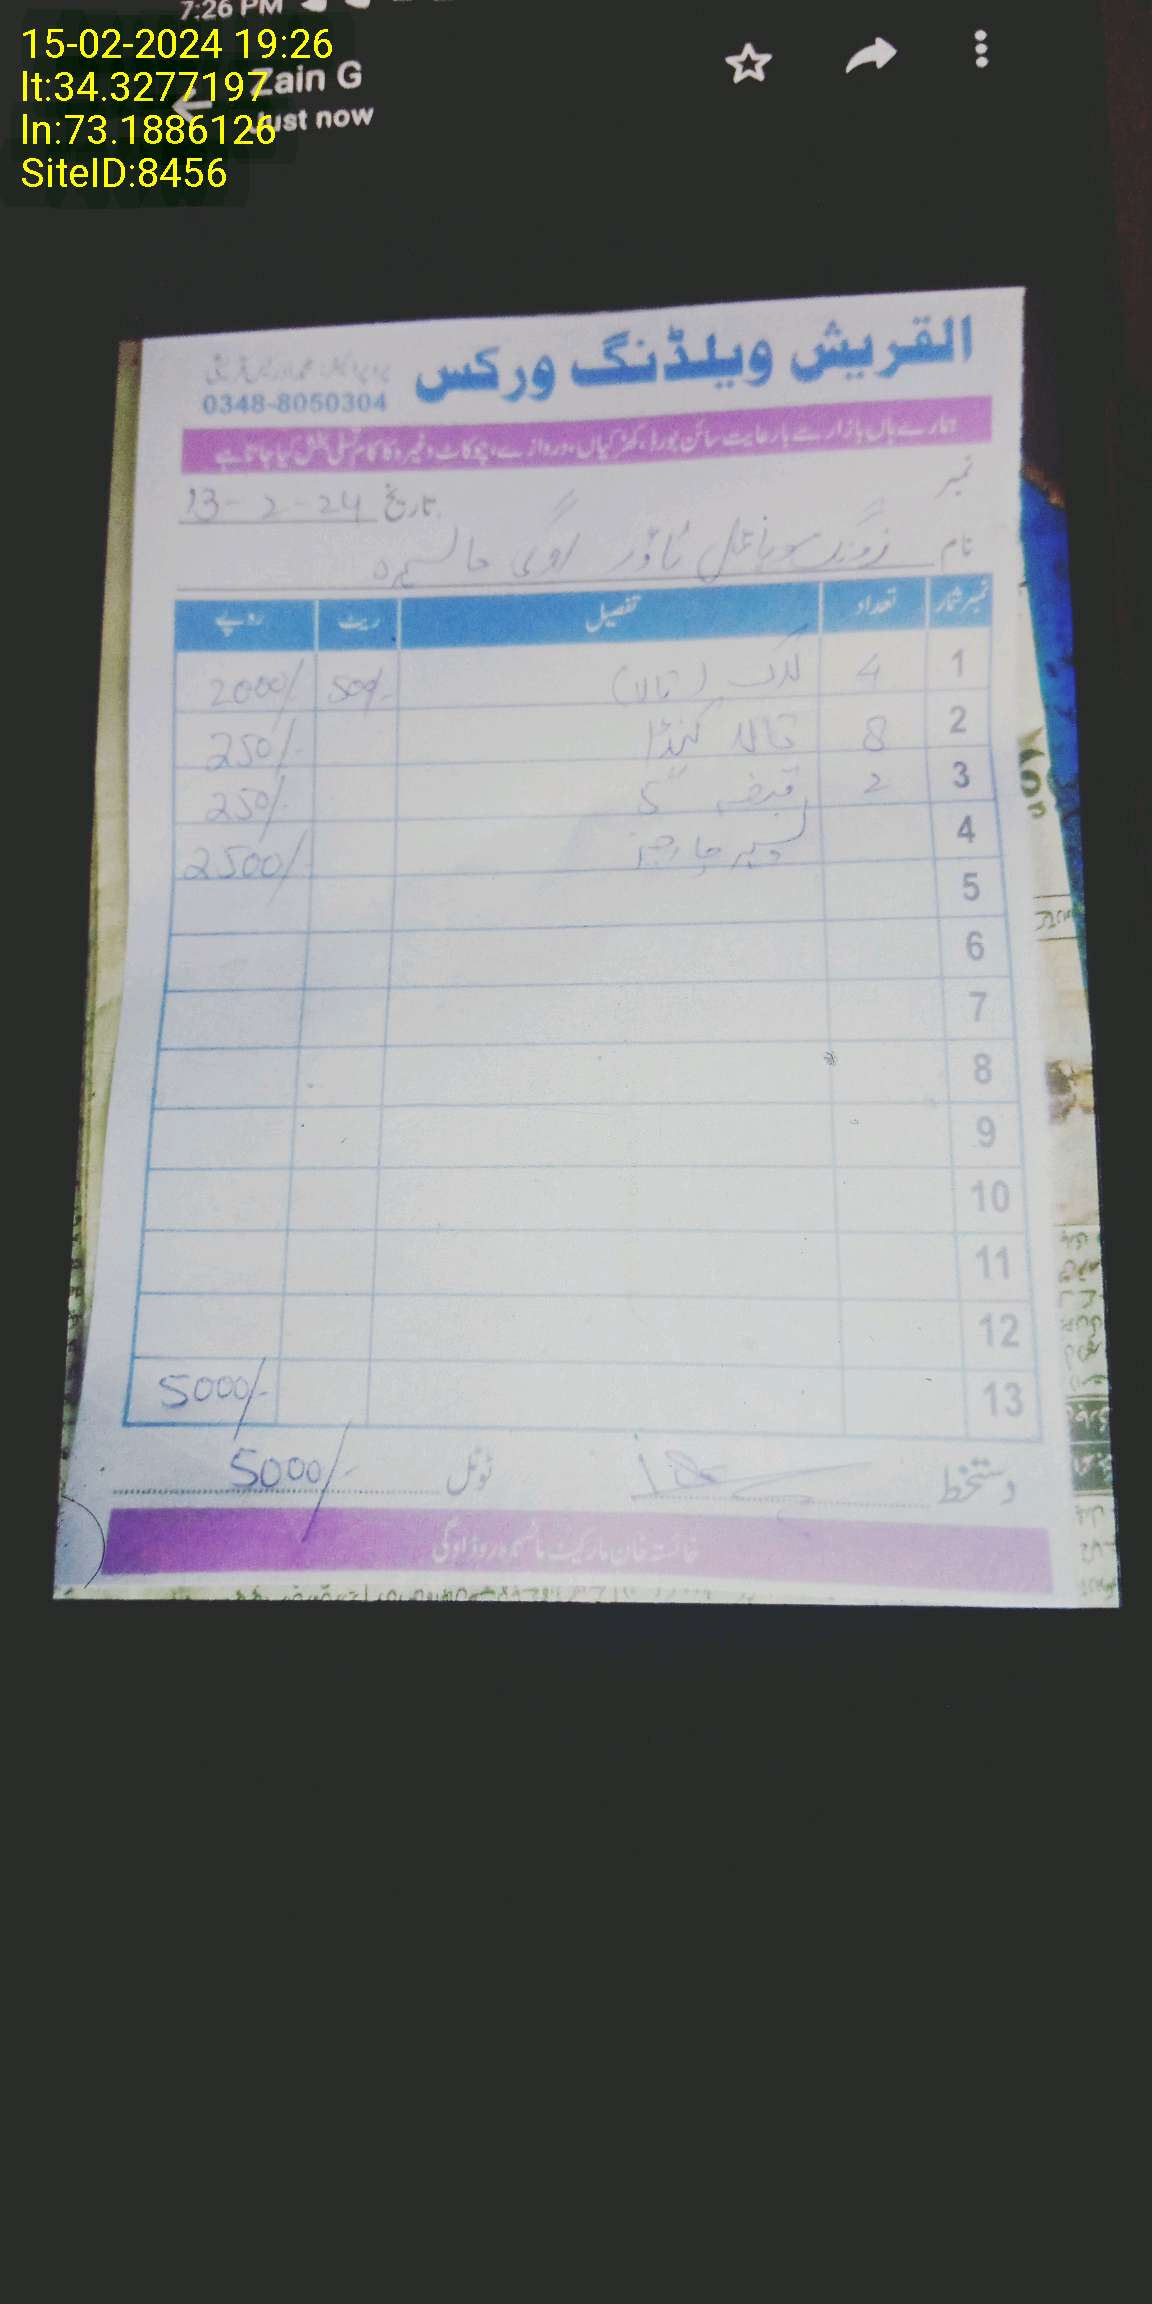 7:26 PM
15-02-2024 19:26
lt:34.3277197
ln:73.1886126
SiteID:8456
Zain G
Just now
القریش ویلڈنگ ورکس
0348-8050304
ہمارے ہاں بازار سے بارعایت سائن بورڈ، کھڑکیاں، دروازے، چوکاٹ وغیرہ کا کام تسلی بخش کیا جاتا ہے
نمبر
تاریخ 13-2-24
نام زونگ موبائل ٹاور اوگی مانسہرہ
نمبر شمار تعداد تفصیل ریٹ روپے
1 4 لاک (تالا) 500/- 2000/-
2 8 تالا کنڈا 250/-
3 2 قبضہ 5" 250/-
4 لیبر چارجز 2500/-
5
6
7
8
9
10
11
12
13 5000/-
دستخط ٹوٹل 5000/-
خائستہ خان مارکیٹ مانسہرہ روڈ اوگی